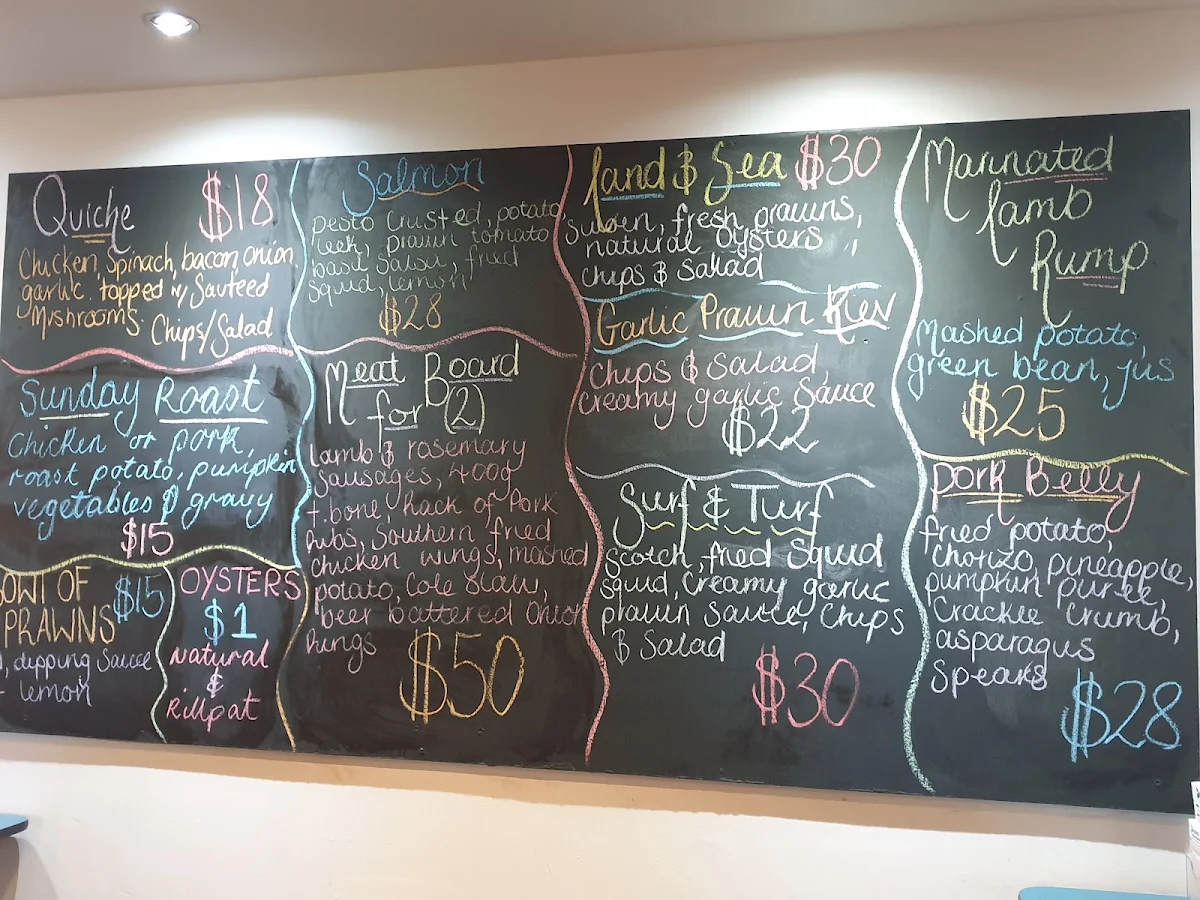 Quiche $18
Chicken, Spinach, bacon, onion,
garlic. topped w/ Sauteed
Mushrooms.
Chips/Salad
Sunday Roast
Chicken or pork,
roast potato, pumpkin
vegetables & gravy
$15
OF $15
PRAWNS
dipping Sauce
lemon
OYSTERS
$1
Natural
&
Killpat
Salmon
pesto Crusted, potato
leek, prawn tomato
basil Salsa, fried
squid, lemon
$28
Meat Board
for (2)
lamb & rosemary
Sausages, 400g
t.bone, Rack of Pork
Ribs, Southern fried
chicken wings, mashed
potato, Cole Slaw,
beer battered Onion
Rings
$50
Land & Sea $30
fresh prawns,
natural oysters,
chips & Salad
Garlic Prawn Kiev
Chips & Salad,
creamy garlic Sauce
$22
Surf & Turf
Scotch, fried Squid
squid, Creamy garlic
prawn Sauce, Chips
& Salad
$30
Marinated
Lamb
Rump
Mashed potato,
green bean, jus
$25
Pork Belly
fried potato,
Chorizo, pineapple,
pumpkin puree,
Crackle Crumb,
asparagus
Spears
$28